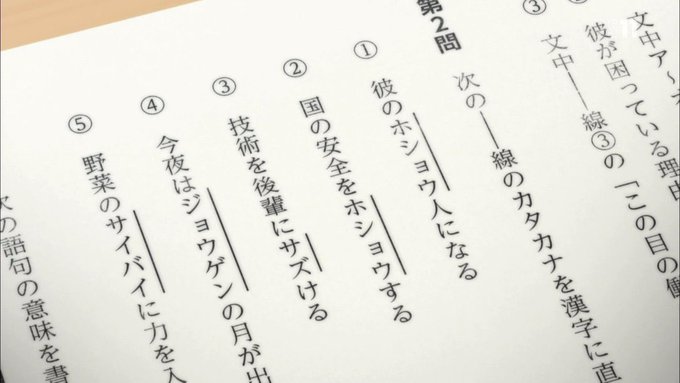 文中ア～
彼が困っている理由
③ 文中――線③の「この目の働
第2問 次の――線のカタカナを漢字に直
① 彼のホショウ人になる
② 国の安全をホショウする
③ 技術を後輩にサズける
④ 今夜はジョウゲンの月が出
⑤ 野菜のサイバイに力を入
次の語句の意味を書